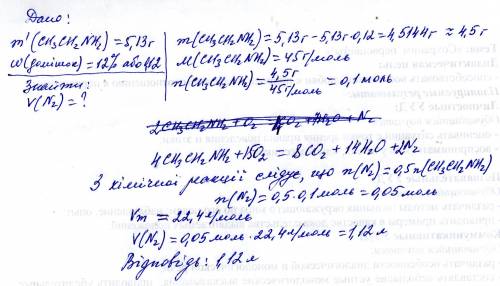 Дано:
m'(CH3CH2NH2)=5,13г
w(домішок)=12% або 0,12
Знайти:
V(N2)=?
m(CH3CH2NH2)=5,13г-5,13г·0,12=4,5144г≈4,5г
M(CH3CH2NH2)=45г/моль
n(CH3CH2NH2)=4,5г/45г/моль=0,1моль
4CH3CH2NH2+15O2=8CO2+14H2O+2N2
З хімічної реакції слідує, що n(N2)=0,5n(CH3CH2NH2)
n(N2)=0,5·0,1моль=0,05моль
Vm=22,4л/моль
V(N2)=0,05моль·22,4л/моль=1,12л
Відповідь: 1,12л